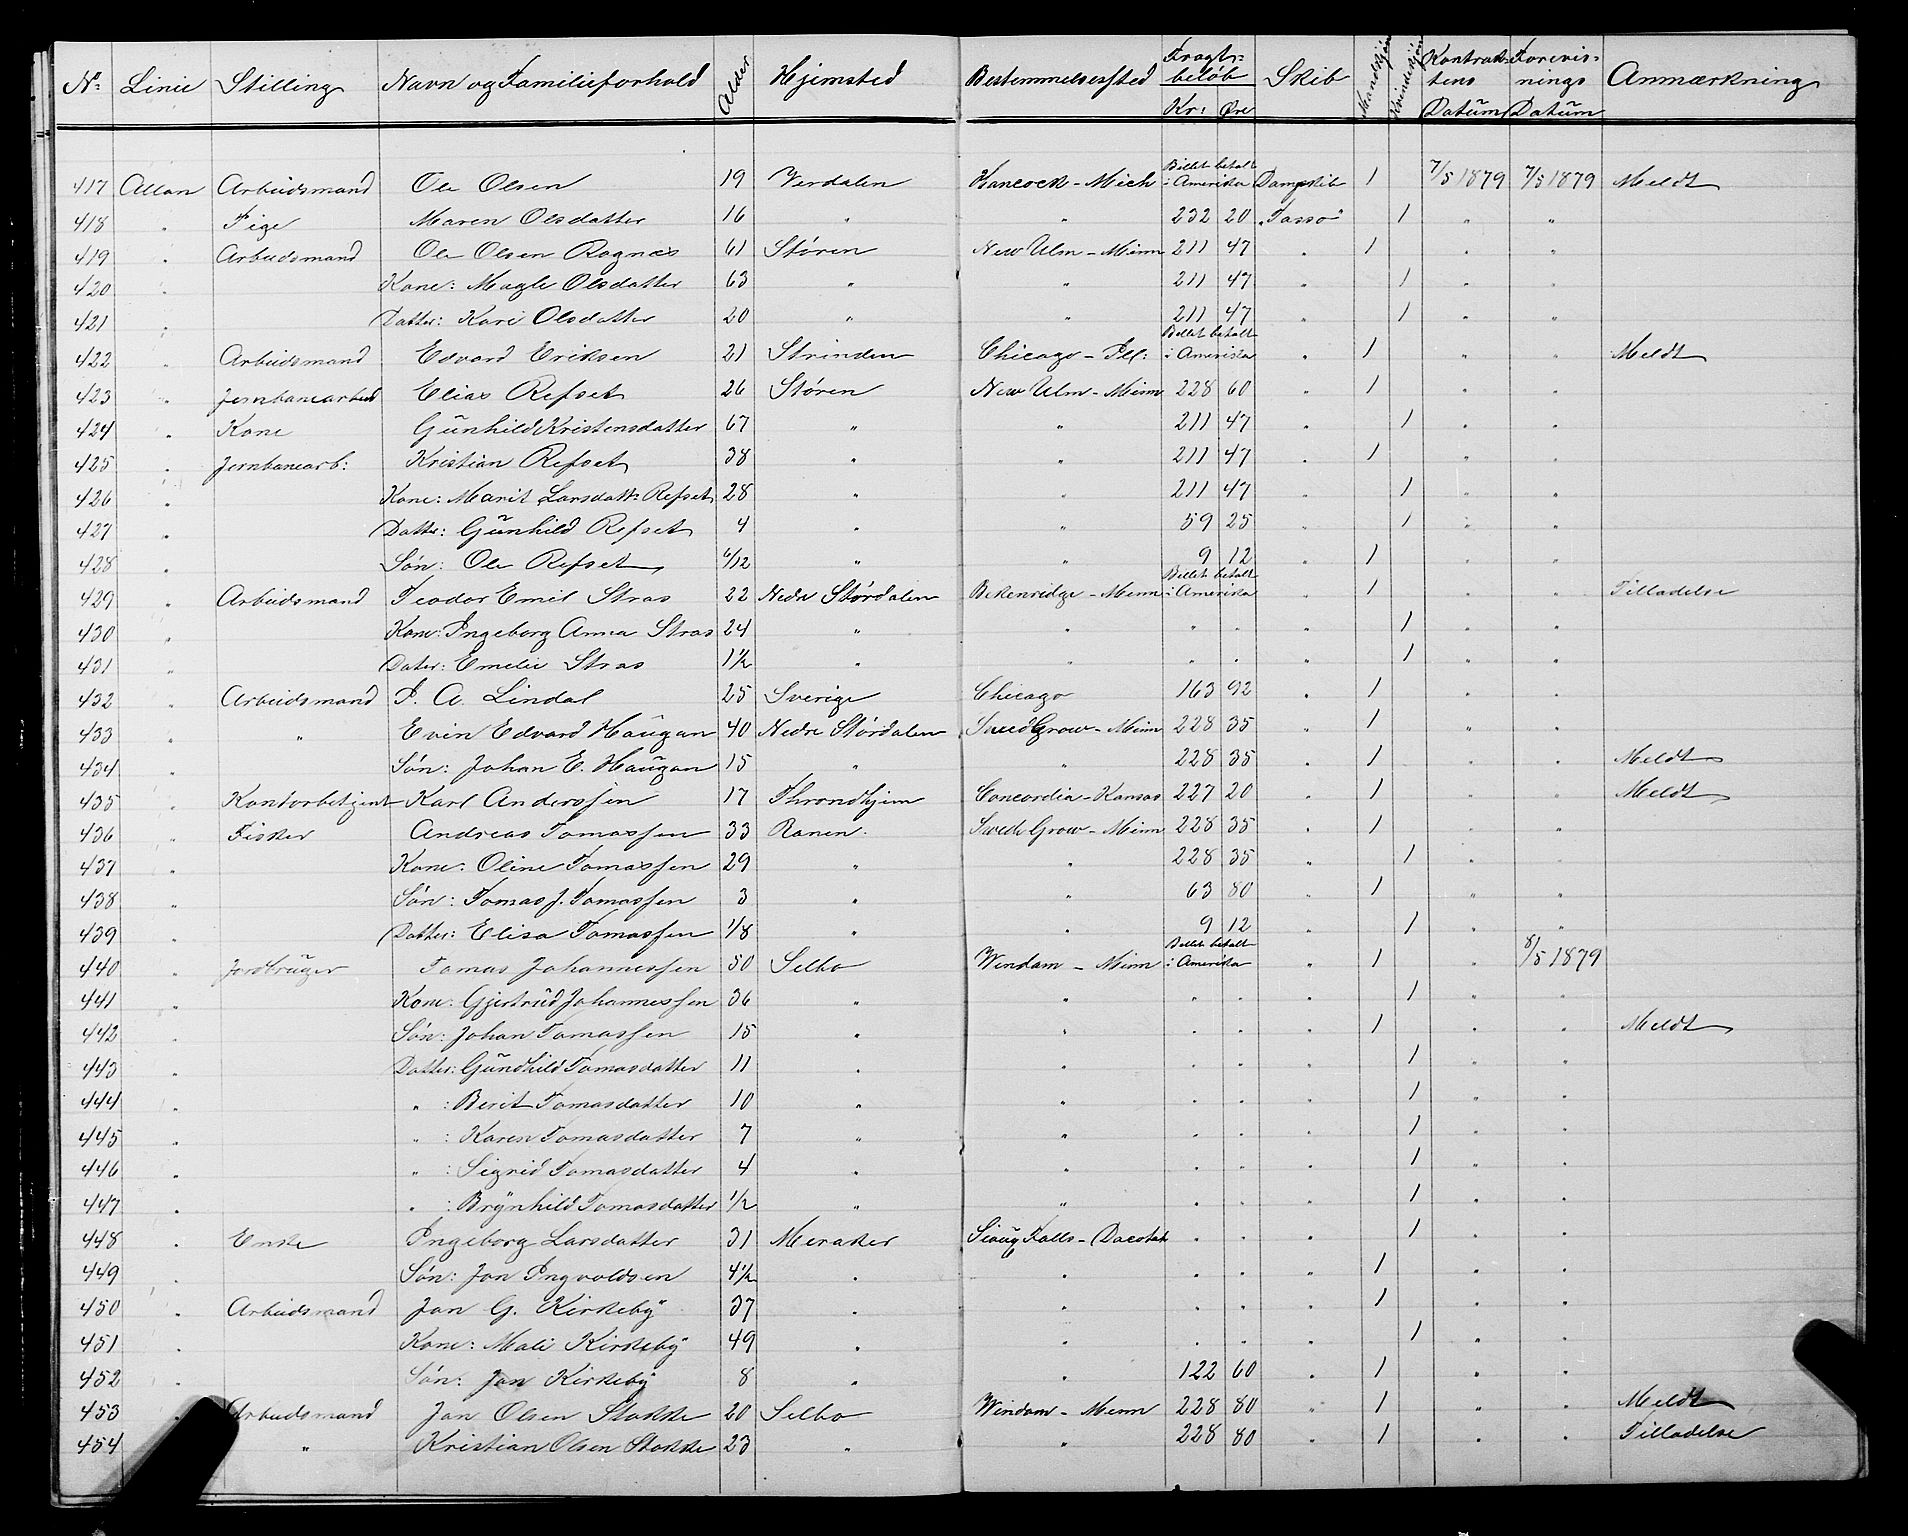 No: Linie Stilling Navn og Familieforhold Alder Hjemsted Bestemmelsessted Fragtbeløb Kr: Øre Skib Mandkjøn Kvindekjøn Kontraktens Datum Forevisnings Datum Anmærkning
417 Allan Arbeidsmand Ole Olsen 19 Verdalen Hancock - Mich Billet betalt i Amerika Dampskib 1 7/5 1879 7/5 1879 Meldt
418 " Pige Maren Olsdatter 16 " " 232 20 "Tasso" 1 " "
419 " Arbeidsmand Ole Olsen Rognes 61 Støren New Ulm - Minn 211 47 " 1 " "
420 " Kone: Magle Olsdatter 63 " " 211 47 " 1 " "
421 " Datter: Kari Olsdatter 20 " " 211 47 " 1 " "
422 " Arbeidsmand Edvard Eriksen 21 Strinden Chicago - Ill: Billet betalt i Amerika " 1 " " Meldt
423 " Jernbanearbeid Elias Refset 26 Støren New Ulm - Minn 228 60 " 1 " "
424 " Kone Gunhild Kristensdatter 67 " " 211 47 " 1 " "
425 " Jernbanearb: Kristian Refset 38 " " 211 47 " 1 " "
426 " Kone: Marit Larsdatt: Refset 28 " " 211 47 " 1 " "
427 " Datter: Gunhild Refset 4 " " 59 25 " 1 " "
428 " Søn: Ole Refset 6/12 " " 9 12 1 " "
429 " Arbeidsmand Teodor Emil Stras 22 Nedre Størdalen Bekenridge - Minn Billet betalt i Amerika " 1 " " Tilladelse
430 " Kone: Ingeborg Anna Stras 24 " " " " " 1 " "
431 " Dater: Emelie Stras 1 1/2 " " " " " 1 " "
432 " Arbeidsmand P. A. Lindal 25 Sverige Chicago 163 92 " 1 " "
433 " " Evin Edvard Haugan 40 Nedre Størdalen Swed Grow - Minn 228 35 " 1 " "
434 " Søn: Johan E. Haugan 15 " " 228 35 " 1 " " Meldt
435 " Kontorbetjent Karl Anderssen 17 Throndhjem Concordia - Kansas 227 20 " 1 " " Meldt
436 " Fisker Andreas Tomassen 33 Ranen Swede Grow - Minn 228 35 " 1 " "
437 " Kone: Oline Tomassen 29 " " 228 35 " 1 " "
438 " Søn: Tomas J. Tomassen 3 " " 63 80 " 1 " "
439 " Datter: Elisa Tomassen 1/8 " " 9 12 " 1 " "
440 " Jordbruger Tomas Johannessen 50 Selbo Windam - Minn Billet betalt i Amerika " 1 " 8/5 1879
441 " Kone: Gjertrud Johannessen 36 " " " " " 1 " "
442 " Søn: Johan Tomassen 15 " " " " " 1 " " Meldt
443 " Datter: Gundhild Tomasdatter 11 " " " " " 1 " "
444 " " : Berit Tomasdatter 10 " " " " " 1 " "
445 " " : Karen Tomasdatter 7 " " " " " 1 " "
446 " " : Sigrid Tomasdatter 4 " " " " " 1 " "
447 " " : Brynhild Tomasdatter 1/2 " " " " " 1 " "
448 " Enke Ingeborg Larsdatter 31 Meraker Sioux Falls - Dacotah " " " 1 " "
449 " Søn: Jon Ingvoldsen 4 1/2 " " " " " 1 " "
450 " Arbeidsmand Jon G. Kirkeby 37 " " " " " 1 " "
451 " Kone: Mali Kirkeby 49 " " " " " 1 " "
452 " Søn: Jon Kirkeby 8 " " 122 60 " 1 " "
453 " Arbeidsmand Jon Olsen Stokke 20 Selbo Windam - Minn 228 80 " 1 " " Meldt
454 " Kristian Olsen Stokke 23 " " 228 80 " 1 " " Tilladelse